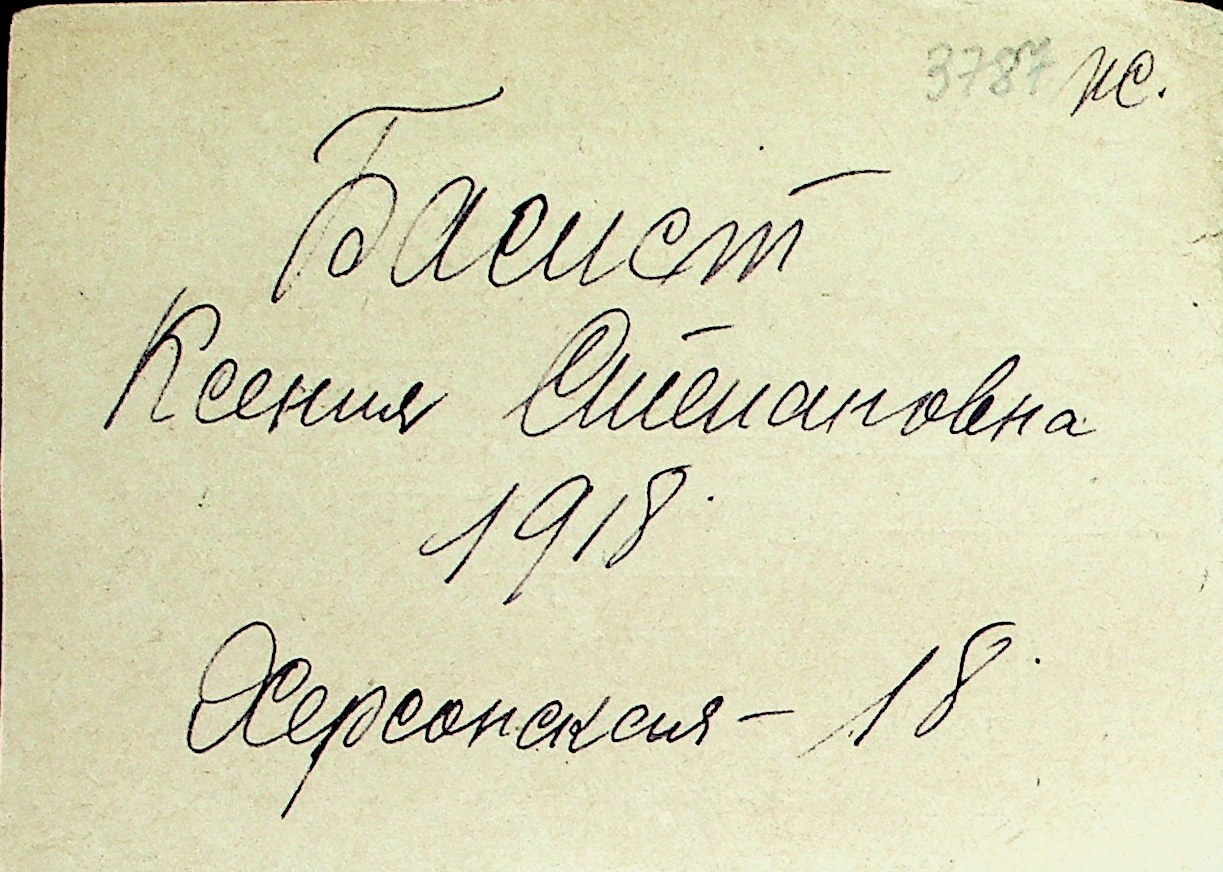 3787 ис.
Басист
Ксения Степановна
1918
Херсонская - 18